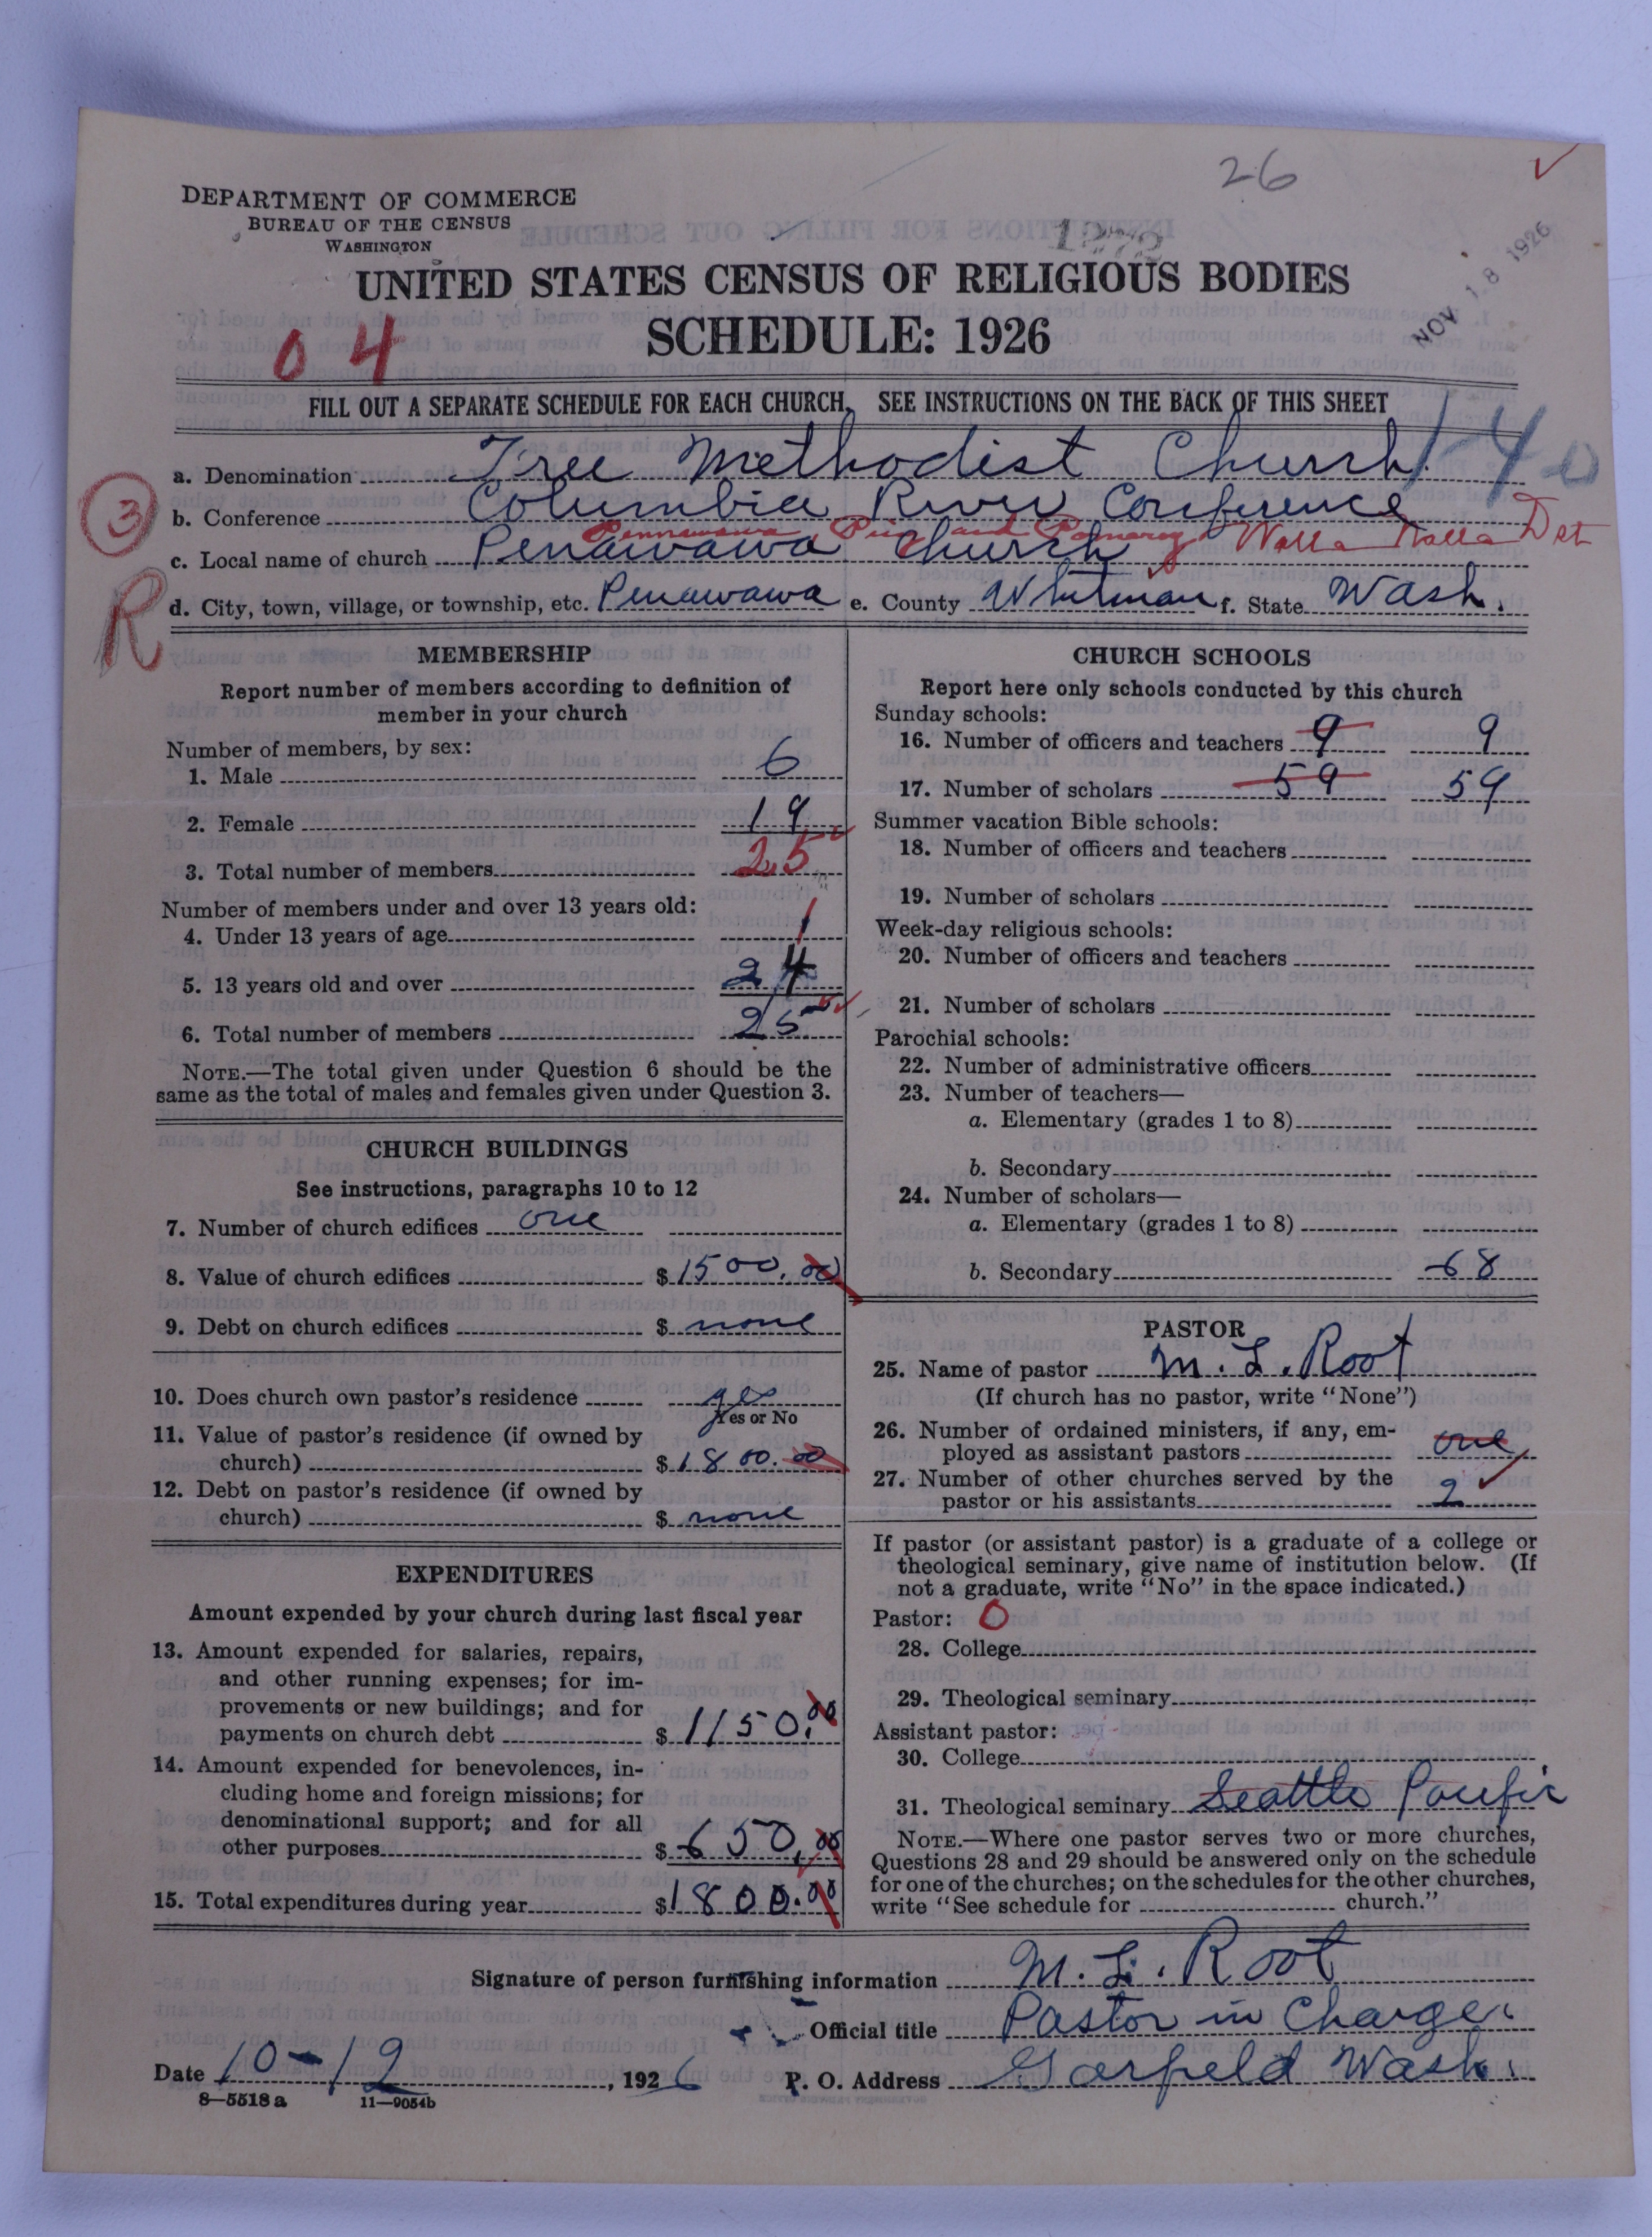 26
DEPARTMENT OF COMMERCE
BUREAU OF THE CENSUS
WASHINGTON
UNITED STATES CENSUS OF RELIGIOUS BODIES
SCHEDULE: 1926
NOV 18 1926
04
FILL OUT A SEPARATE SCHEDULE FOR EACH CHURCH. SEE INSTRUCTIONS ON THE BACK OF THIS SHEET
a. Denomination Free Methodist Church. 1-40
b. Conference Columbia River Conference
3
Pennawawa and Pomeroy Walla Walla Dst
c. Local name of church Penawawa Church
R
d. City, town, village, or township, etc. Penawawa e. County Whitman f. State Wash.
MEMBERSHIP
Report number of members according to definition of
member in your church
Number of members, by sex:
1. Male 6
2. Female 19
3. Total number of members 25
Number of members under and over 13 years old:
4. Under 13 years of age 1
5. 13 years old and over 24
6. Total number of members 25
NOTE.—The total given under Question 6 should be the
same as the total of males and females given under Question 3.
CHURCH BUILDINGS
See instructions, paragraphs 10 to 12
7. Number of church edifices one
8. Value of church edifices $1500.00
9. Debt on church edifices $ none
10. Does church own pastor's residence yes
Yes or No
11. Value of pastor's residence (if owned by
church) $1800.00
12. Debt on pastor's residence (if owned by
church) $ none
EXPENDITURES
Amount expended by your church during last fiscal year
13. Amount expended for salaries, repairs,
and other running expenses; for im-
provements or new buildings; and for
payments on church debt $1150.00
14. Amount expended for benevolences, in-
cluding home and foreign missions; for
denominational support; and for all
other purposes $650.00
15. Total expenditures during year $1800.00
CHURCH SCHOOLS
Report here only schools conducted by this church
Sunday schools:
16. Number of officers and teachers 9 9
17. Number of scholars 59 59
Summer vacation Bible schools:
18. Number of officers and teachers
19. Number of scholars
Week-day religious schools:
20. Number of officers and teachers
21. Number of scholars
Parochial schools:
22. Number of administrative officers
23. Number of teachers—
a. Elementary (grades 1 to 8)
b. Secondary
24. Number of scholars—
a. Elementary (grades 1 to 8)
b. Secondary 68
PASTOR
25. Name of pastor M. L. Root
(If church has no pastor, write "None")
26. Number of ordained ministers, if any, em-
ployed as assistant pastors one
27. Number of other churches served by the
pastor or his assistants 2
If pastor (or assistant pastor) is a graduate of a college or
theological seminary, give name of institution below. (If
not a graduate, write "No" in the space indicated.)
Pastor: 0
28. College
29. Theological seminary
Assistant pastor:
30. College
31. Theological seminary Seattle Pacific
NOTE.—Where one pastor serves two or more churches,
Questions 28 and 29 should be answered only on the schedule
for one of the churches; on the schedules for the other churches,
write "See schedule for church."
Signature of person furnishing information M. L. Root
Official title Pastor in Charge.
Date 10-12, 1926 P. O. Address Garfield Wash.
8—5518a 11—9054b